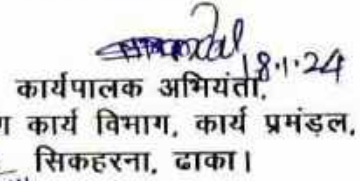 18.1.24
कार्यपालक अभियंता,
कार्य विभाग, कार्य प्रमंडल,
सिकहरना, ढाका।